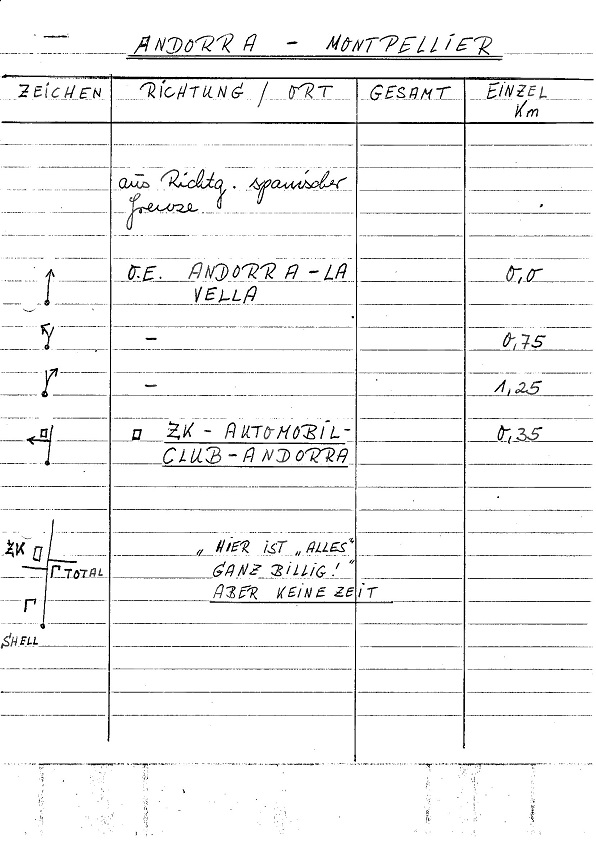 ANDORRA - MONTPELLIER
ZEICHEN RICHTUNG / ORT GESAMT EINZEL
Km
aus Richtg. spanischer
Grenze
O.E. ANDORRA-LA 0,0
VELLA
- 0,75
- 1,25
ZK - AUTOMOBIL- 0,35
CLUB-ANDORRA
ZK
TOTAL
SHELL
„HIER IST „ALLES"
GANZ BILLIG!"
ABER KEINE ZEIT